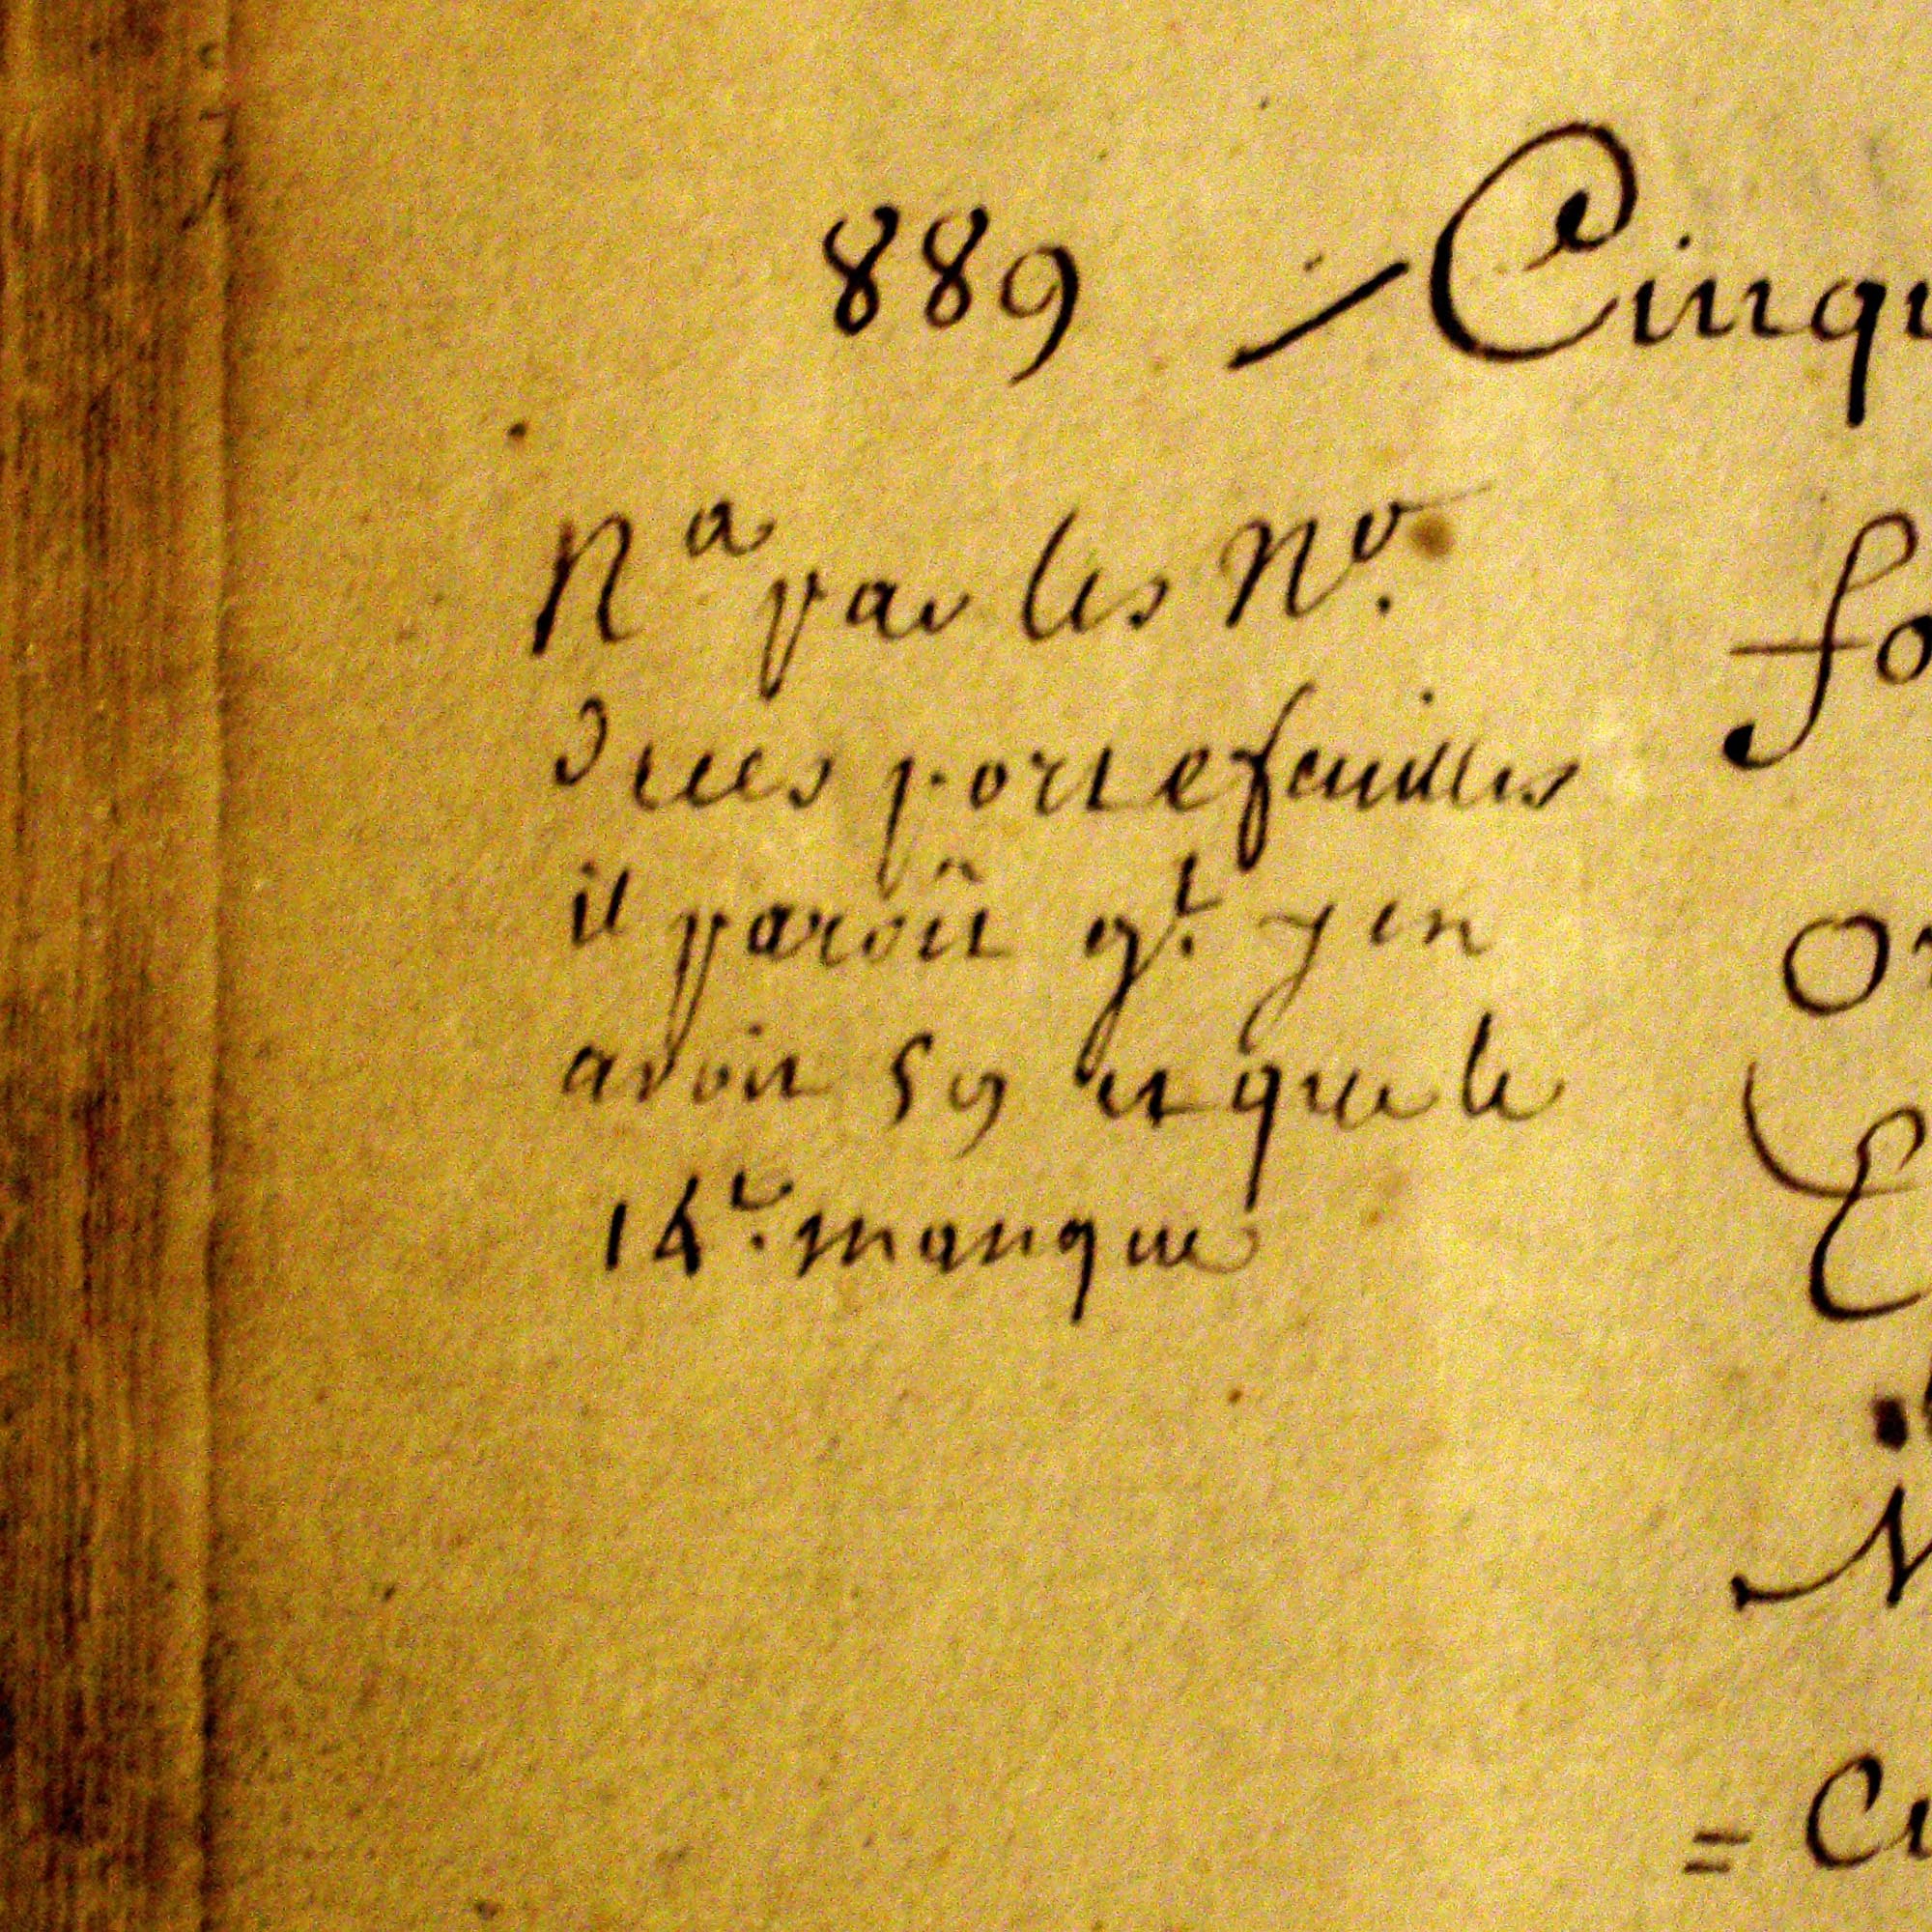 889 Cinqu
Na par les No.
de ces portefeuilles fo
il paroît qt. y en
avoit 59 et que le
14e. manque
= Cu